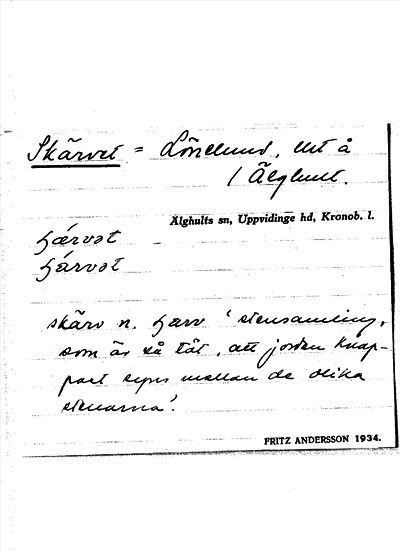 Skärvet = Lönelund, lht å
/ Älghult.
Älghults sn, Uppvidinge hd, Kronob. l.
skärv n. 'stensamling,
som är så tät, att jorden knap-
past synes mellan de olika
stenarna'.
FRITZ ANDERSSON 1934.